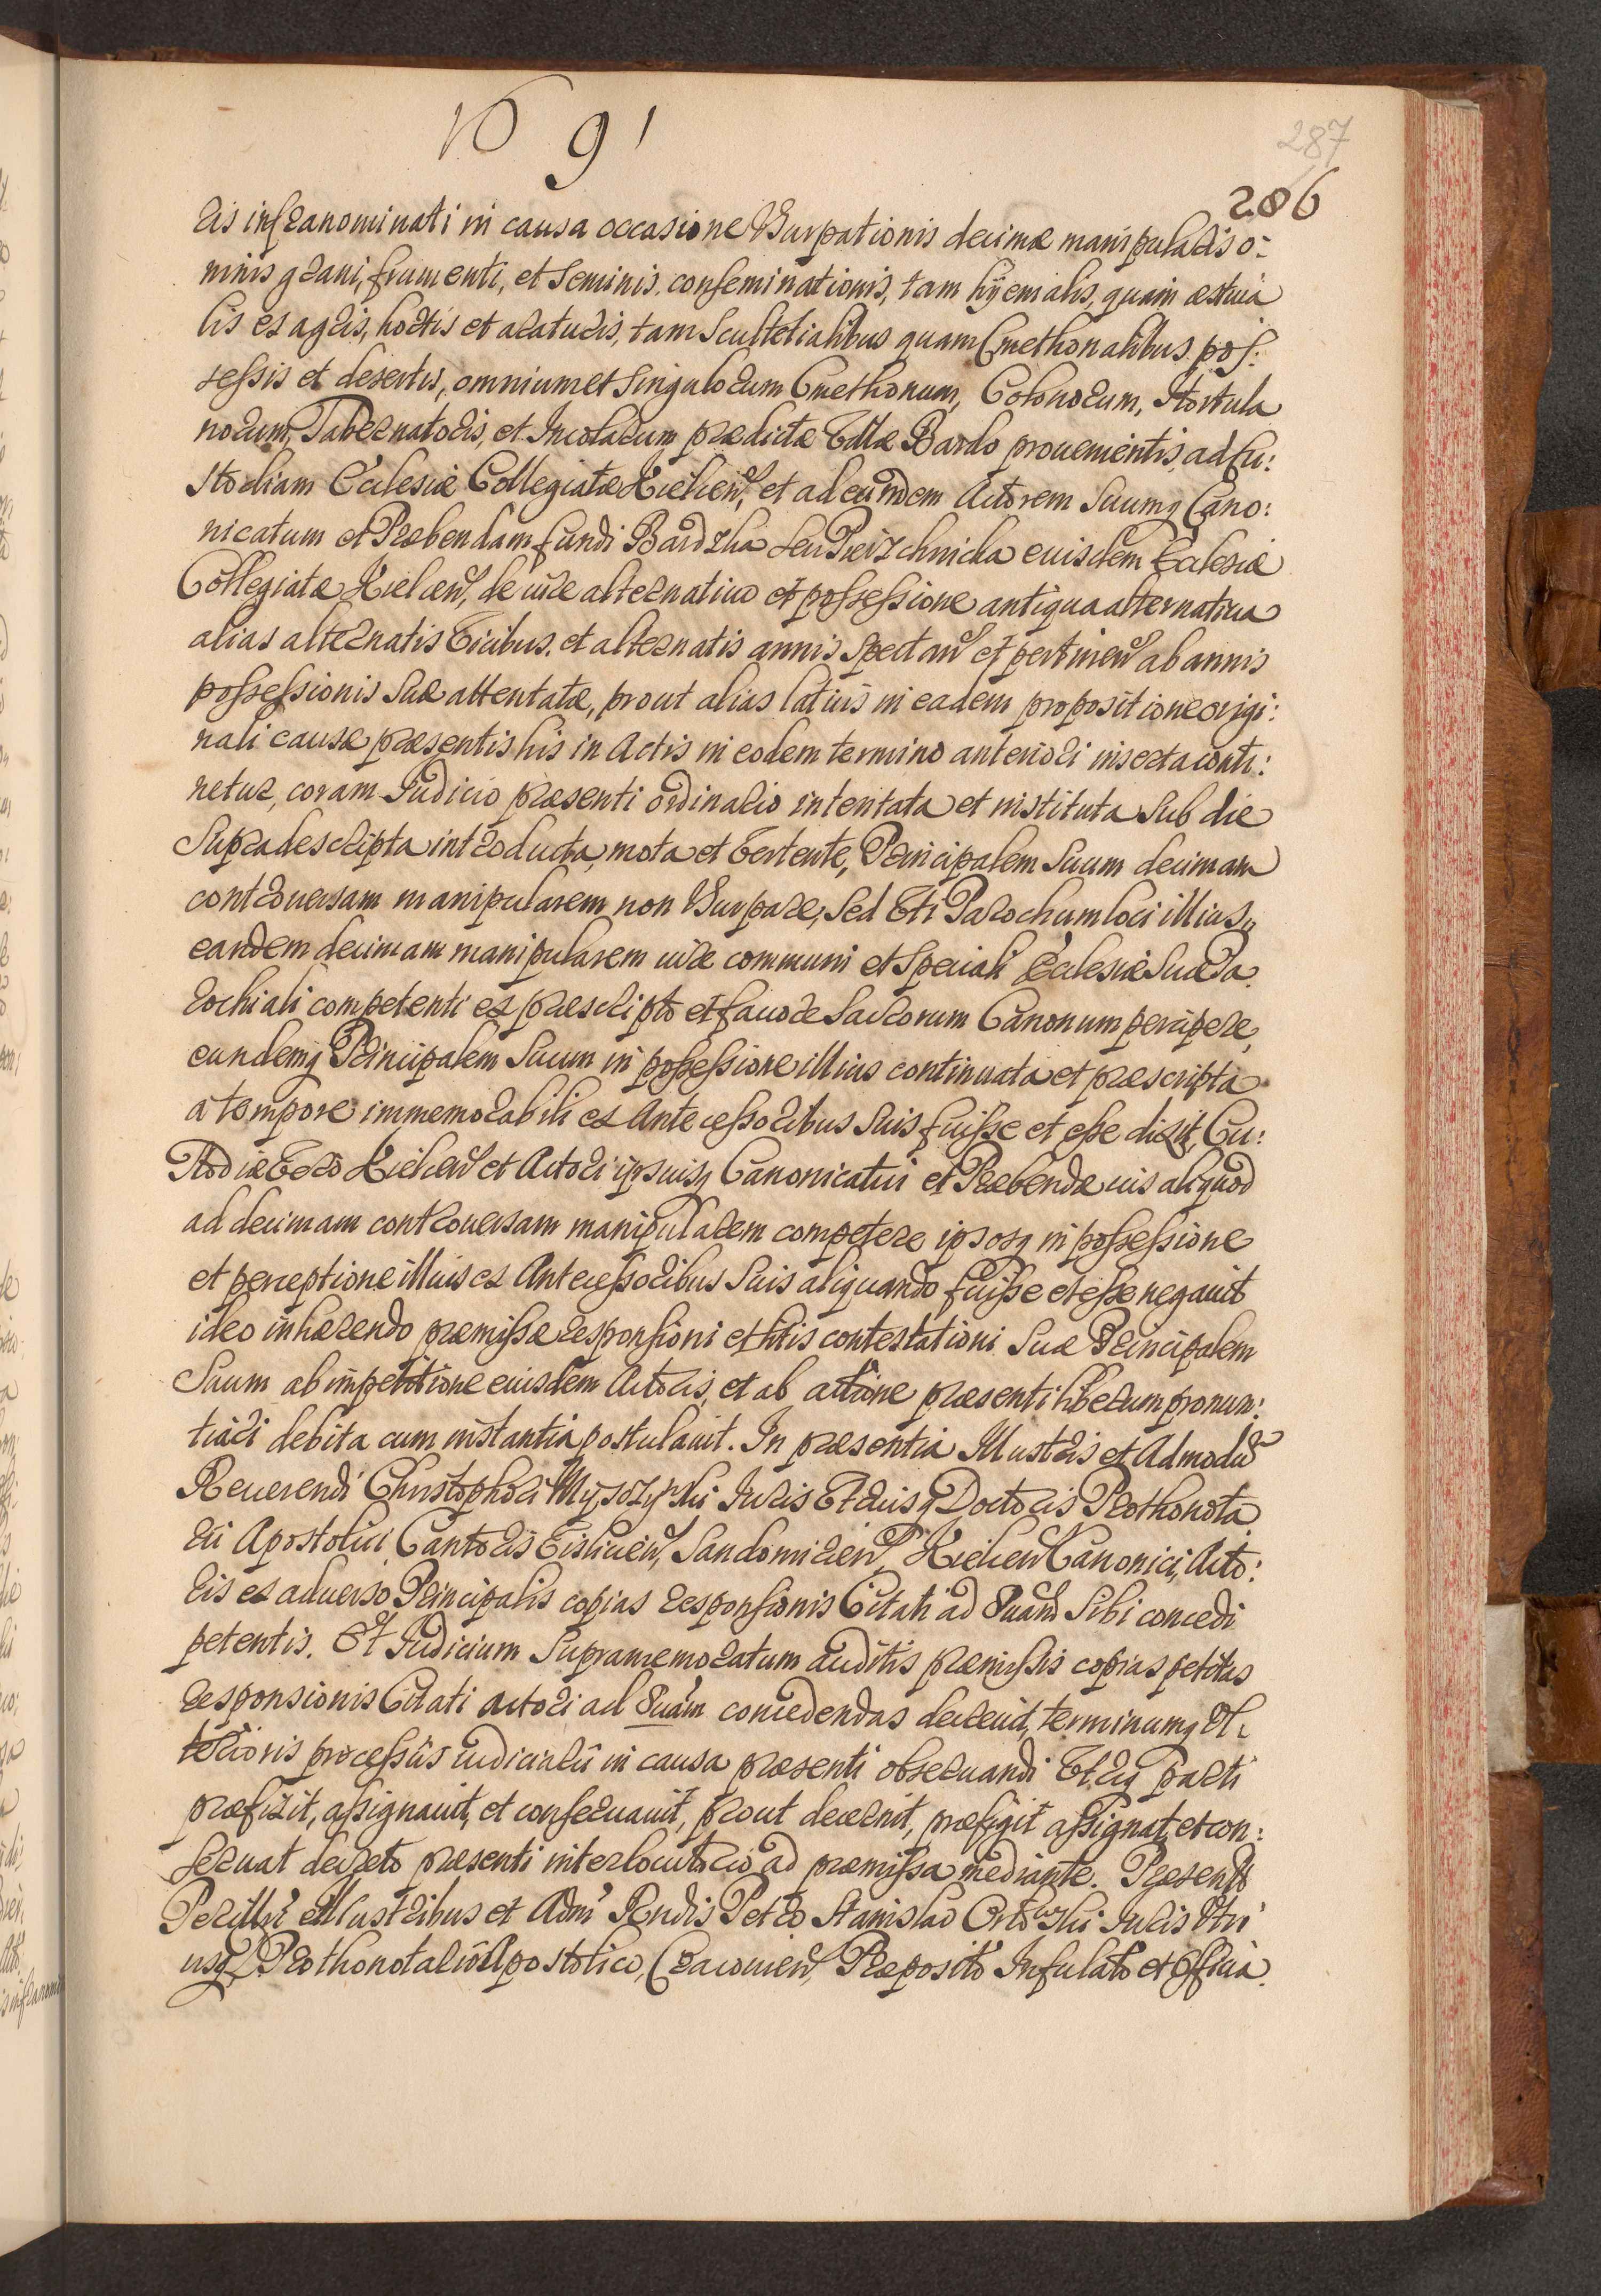 1691
287
286
ris infranominati in causa occasione Usurpationis decimæ manipularis o:
mnis grani, frumenti, et Seminis. conseminationis, tam hÿemalis, quam æstiua
lis ex agris, hortis et araturis, tam Scultetialibus quam Cmethonalibus. pos:
sessis et desertis, omnium et Singulorum Cmethonum, Colonorum, Hortula
norum, Tabernatoris, et Incolarum prædictæ Villæ Bardo prouenientis, ad Cu:
stodiam Ecclesiæ Collegiatæ Kielcen, et ad eundem Actorem Suumq Cano:
nicatum et Præbendam fundi Bardzka seu Pierzchnicka eiusdem Ecclesiæ
Collegiatæ Kielcen, de iure alternatiuo et possessione antiqua alternatiua
alias alternatis Vicibus. et alternatis annis Spectan et pertinen ab annis
possessionis Suæ attentatæ, prout alias latius in eadem propositione origi:
nali causæ præsentis his in Actis in eodem termino anteriori inserta conti:
netur, coram Judicio præsenti ordinario intentata et instituta Sub die
Supradescripta introducta, mota et Vertente, Principalem Suum decimam
controuersam manipularem non Usurpare, Sed Vti Parochum loci illius,
eandem decimam manipularem iure communi et Speciali Ecclesiæ Suæ Pa
rochiali competenti ex præscripto et fauore Sacrorum Canonum percipere,
eundemq Principalem Suum in possessione illius continuata et præscripta
a tempore immemorabili ex Antecessoribus Suis fuisse et esse dixit, Cu:
stodiæ Vero Kielcen et Actori ipsuisq Canonicatui et Præbendæ ius aliquod
ad decimam controuersam manipularem competere ipsosq in possessione
et perceptione illius ex Antecessoribus Suis aliquando fuisse et esse negauit
ideo inhærendo præmissæ responsioni et litis contestationi Suæ Principalem
Suum ab impetitione eiusdem Actoris, et ab actione præsenti liberum pronun:
tiari debita cum instantia postulauit. In præsentia Illustris et Admodu
Reuerendi Christophori Juris Vtriusq Doctoris Prothonota
rii Apostolici Cantoris Vislicien, Sandomirien, Kielcen Canonici, Acto:
ris ex aduerso Principalis copias responsionis Citati ad Suam Sibi concedi
petentis. Et Judicium Supramemoratum auditis præmissis copias petitas
responsionis Citati actori ad Suam concedendas decreuit, terminumq Vl:
terioris processus iudiciarii in causa præsenti obseruandi Vtriq parti
præfixit, assignauit, et conseruauit, prout decernit, præfigit assignat, et con:
seruat decreto præsenti interlocutorio ad præmissa mediante. Præsentt
Perillri Illustribus et Adm Rendis Petro Stanislao Orłowski Juris Vtri
usq. Prothonotario Apostolico, Cracouien, Præposito Infulato et Officia